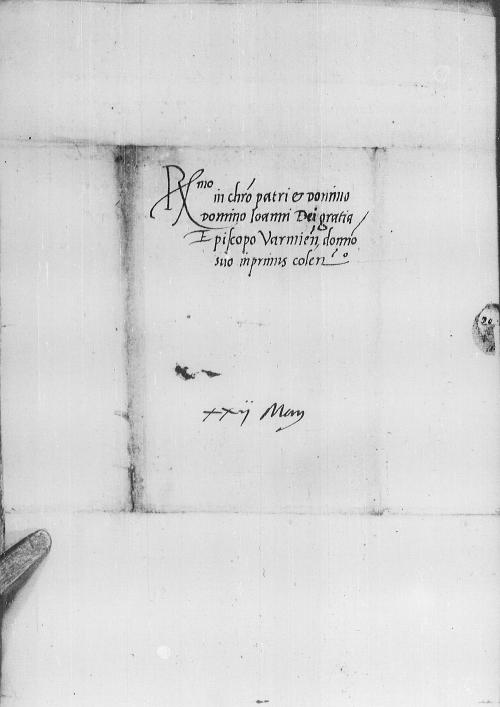 R<sup>mo</sup>
in chr̃o patri et domino
domino Ioanni Dei gratia
Episcopo Varmień. domno
suo inprimis colen<sup>do</sup>
xxij May